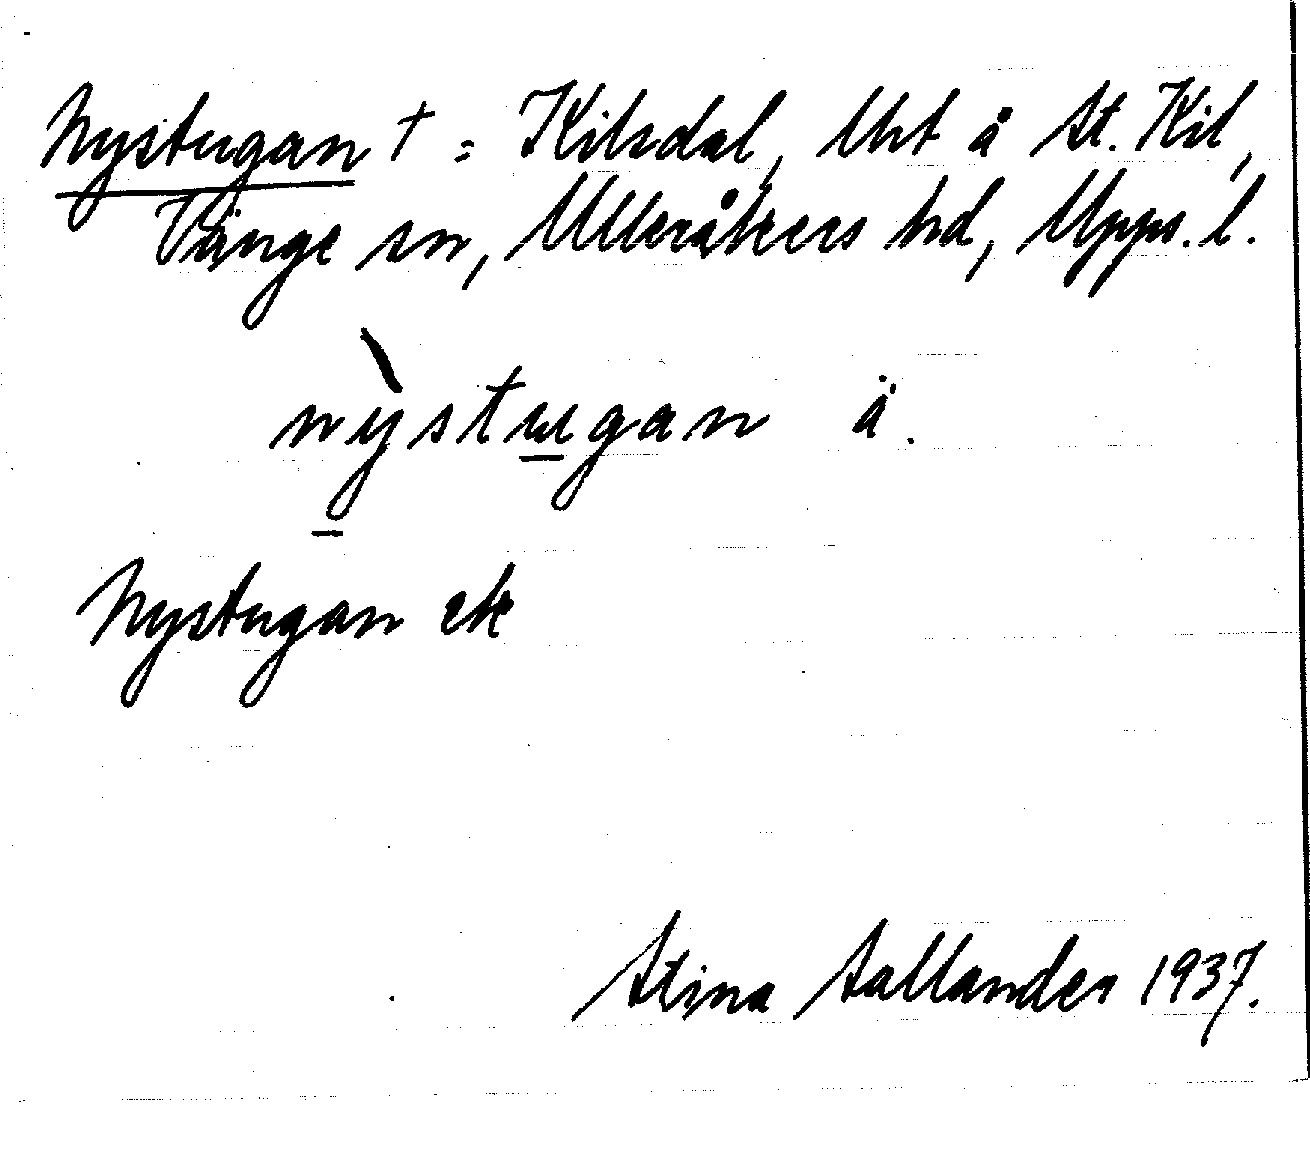 Nystugan † = Kilsdal, lht å St. Kil,
Vänge sn, Ulleråkers hd, Upps. l.
nỳstugan ä.
Nystugan ek
Stina Sallander 1937.